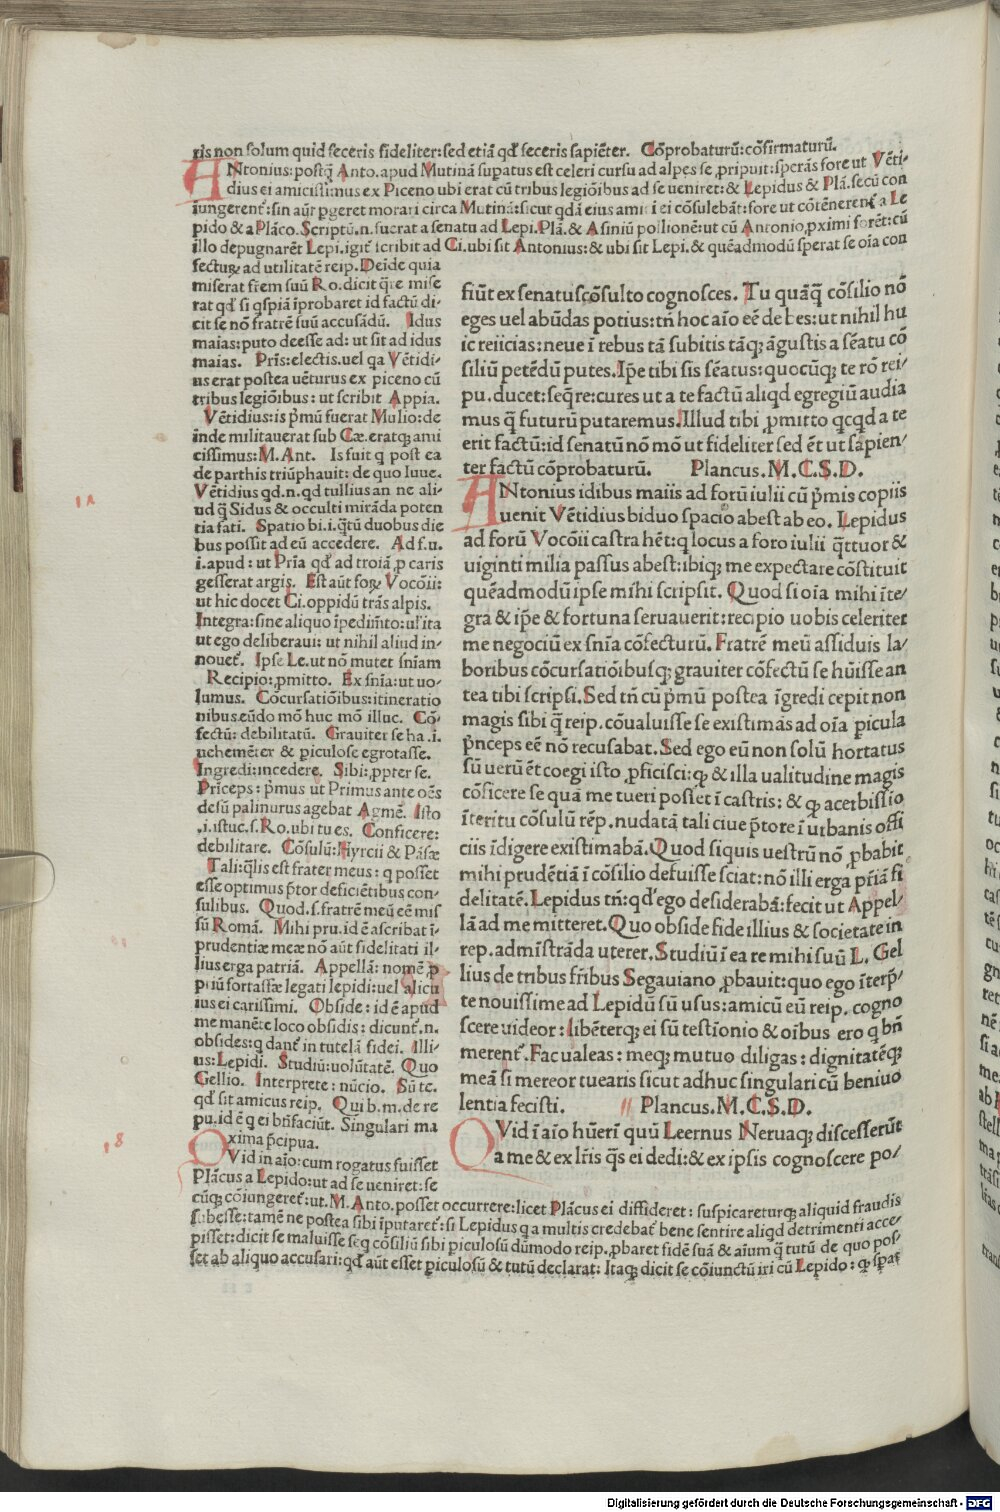 ris non solum quid feceris fideliter: sed etiã qđ feceris sapiẽter. Cõprobaturũ: cõfirmaturũ.
ANtonius: postq̃ Anto. apud Mutinã supatus est celeri cursu ad alpes se ꝓripuit: sperãs fore ut Vẽti-
dius ei amicissimus ex Piceno ubi erat cũ tribus legiõibus ad se ueniret: & Lepidus & Plã. secũ con
iungerent: sin aũt pgeret morari circa Mutinã: sicut qdã eius amici ei cõsulebãt: fore ut cõtẽnerent a Le
pido & a Plãco. Scriptũ. n. fuerat a senatu ad Lepi. Plã. & Asiniũ pollionẽ: ut cũ Antonio, pximi forẽt: cũ
illo depugnarẽt Lepi. igit scribit ad Ci. ubi sit Antonius: & ubi sit Lepi. & quẽadmodũ sperat se oĩa con
fecturꝝ ad utilitatẽ reip. Deĩde quia
miserat frẽm suũ Ro. dicit q̃re mise
rat qđ si qspiã ĩprobaret id factũ di-
cit se nõ fratrẽ suũ accusãdũ. Idus
maias: puto deesse ad: ut sit ad idus
maias. Prĩs: electis. uel qa Vẽtidi-
us erat postea uẽturus ex piceno cũ
tribus legiõibus: ut scribit Appia.
Vẽtidius: is pmũ fuerat Mulio: de
ĩnde militauerat sub Cæ. eratq; ami
cissimus: M. Ant. Is fuit q post ea
de parthis triũphauit: de quo Iuue.
Vẽtidius qd. n. qd tullius an ne ali-
ud q̃ Sidus & occulti mirãda poten
tia fati. Spatio bi. i. q̃tũ duobus die
bus possit ad eũ accedere. Ad f. u.
i. apud: ut Prĩa qđ ad troiã p caris
gesserat argis. Est aũt forꝝ Vocõii:
ut hic docet Ci. oppidũ trãs alpis.
Integra: sine aliquo ĩpedimto: ut ita
ut ego deliberaui: ut nihil aliud in-
nouet. Ipse Le. ut nõ mutet snĩam
Recipio: ꝓmitto. Ex snĩa: ut uo-
lumus. Cõcursatiõibus: itineratio
nibus. eũdo mõ huc mõ illuc. Cõ-
fectũ: debilitatũ. Grauiter se ha. i.
uehemẽter & piculose egrotasse.
Ingredi: incedere. Sibi: ꝓpter se.
Prĩceps: pmus ut Primus ante oẽs
desũ palinurus agebat Agmẽ. Isto
.i. istuc. s. Ro. ubi tu es. Conficere:
debilitare. Cõsulũ: Hyrcii & Pãsæ
Tali: q̃lis est frater meus: q posset
esse optimus ptor deficiẽtibus con-
sulibus. Quod. s. fratrẽ meũ eẽ mis
sũ Romã. Mihi pru. id ẽ ascribat ĩ-
prudentiæ meæ nõ aũt fidelitati il-
lius erga patriã. Appellã: nomẽ ꝓ
piũ fortassæ legati lepidi: uel alicu
ius ei carissimi. Obside: id ẽ apud
me manẽte loco obsidis: dicunt. n.
obsides: q dant in tutelã fidei. Illi-
us: Lepidi. Studiũ: uolũtatẽ. Quo
Gellio. Interprete: nũcio. Sũ te.
qđ sit amicus reip. Qui b. m. de re
pu. id ẽ q ei bñfaciũt. Singulari ma
xima pcipua.
QVid in aĩo: cum rogatus fuisset
Plãcus a Lepido: ut ad se ueniret: se
cũq; cõiungeret: ut. M. Anto. posset occurrere: licet Plãcus ei diffideret: suspicareturq; aliquid fraudis
subesse: tamẽ ne postea sibi ĩputaret: si Lepidus q a multis credebat bene sentire aliqd detrimenti acce-
pisset: dicit se maluisse seq cõsiliũ sibi piculosũ dũmodo reip. ꝓbaret fidẽ suã & aĩum q̃ tutũ de quo pos-
set ab aliquo accusari: qđ aũt esset piculosũ & tutũ declarat: Itaq; dicit se cõiunctũ iri cũ Lepido: qꝫ spat
fiũt ex senatuscõsulto cognosces. Tu quãq̃ cõsilio nõ
eges uel abũdas potius: tñ hoc aĩo eẽ debes: ut nihil hu
ic reiicias: neue ĩ rebus tã subitis tãq; ãgustis a sẽatu cõ
siliũ petẽdũ putes. Ipẽ tibi sis sẽatus: quocũq; te rõ rei-
pu. ducet: seq̃re: cures ut a te factũ aliqd egregiũ audia
mus q̃ futurũ putaremus. Illud tibi ꝓmitto qcqd a te
erit factũ: id senatũ nõ mõ ut fideliter sed ẽt ut sapien-
ter factũ cõprobaturũ. Plancus. M. C. S. D.
ANtonius idibus maiis ad forũ iulii cũ pmis copiis
uenit Vẽtidius biduo spacio abest ab eo. Lepidus
ad forũ Vocõii castra hẽt: q locus a foro iulii q̃ttuor &
uiginti milia passus abest: ibiq; me expectare cõstituit
quẽadmodũ ipse mihi scripsit. Quod si oĩa mihi ĩte-
gra & ipẽ & fortuna seruauerit: recipio uobis celeriter
me negociũ ex snĩa cõfecturũ. Fratrẽ meũ assiduis la-
boribus cõcursatiõibusq; grauiter cõfectũ se hũisse an
tea tibi scripsi. Sed tñ cũ pmũ postea ĩgredi cepit non
magis sibi q̃ reip. cõualuisse se existimãs ad oĩa picula
pnceps eẽ nõ recusabat. Sed ego eũ non solũ hortatus
sũ uerũ ẽt coegi isto ꝓficisci: qꝫ & illa ualitudine magis
cõficere se quã me tueri posset ĩ castris: & qꝫ acerbissio
ĩteritu cõsulũ rẽp. nudatã tali ciue ptore ĩ urbanis offi
ciis ĩdigere existimabã. Quod siquis uestrũ nõ ꝓbabit
mihi prudẽtiã ĩ cõsilio defuisse sciat: nõ illi erga priã fi
delitatẽ. Lepidus tñ: qđ ego desiderabã: fecit ut Appel-
lã ad me mitteret. Quo obside fide illius & societate in
rep. admĩstrãda uterer. Studiũ ĩ ea re mihi suũ L. Gel
lius de tribus fribus Segauiano ꝓbauit: quo ego ĩterp-
te nouissime ad Lepidũ sũ usus: amicũ eũ reip. cogno
scere uideor: libẽterq; ei sũ testĩonio & oĩbus ero q bñ
merent. Fac ualeas: meq; mutuo diligas: dignitatẽq;
meã si mereor tuearis sicut adhuc singulari cũ beniuo
lentia fecisti. Plancus. M. C. S. D.
QVid ĩ aĩo hũeri quũ Leernus Neruaq; discesserũt
a me & ex lris q̃s ei dedi: & ex ipsis cognoscere po-
Digitalisierung gefördert durch die Deutsche Forschungsgemeinschaft - DFG